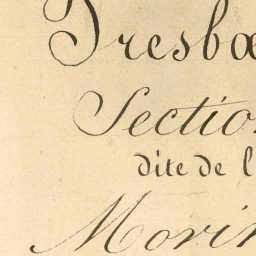 Tresbœ
Section
dite de l
Morin